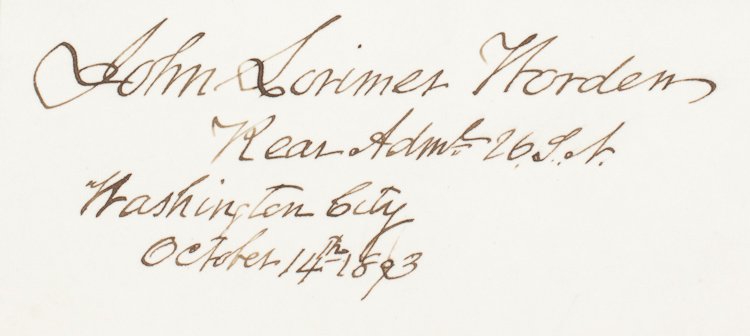 John Lorimer Worden
Rear Adml. U.S.N.
Washington City
October 14th 1893